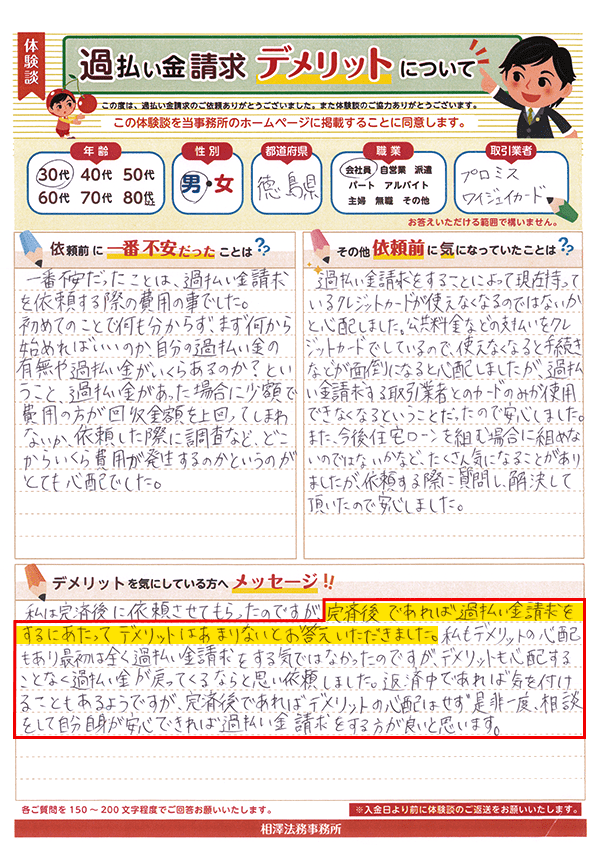 体験談
過払い金請求 デメリットについて
この度は、過払い金請求のご依頼ありがとうございました。また体験談のご協力ありがとうございます。
この体験談を当事務所のホームページに掲載することに同意します。
年齢
30代 40代 50代
60代 70代 80代以上
性別
男・女
都道府県
徳島県
職業
会社員 自営業 派遣
パート アルバイト
主婦 無職 その他
取引業者
プロミス
ワイジェイカード
お答えいただける範囲で構いません。
依頼前に一番不安だったことは??
一番不安だったことは、過払い金請求
を依頼する際の費用の事でした。
初めてのことで何も分からず、まず何から
始めればいいのか、自分の過払い金の
有無や過払い金がいくらあるのか?とい
うこと、過払い金があった場合に少額で
費用の方が回収金額を上回ってしまわ
ないか、依頼した際に調査など、どこ
からいくら費用が発生するのかというのが
とても心配でした。
その他依頼前に気になっていたことは??
過払い金請求をすることによって現在持って
いるクレジットカードが使えなくなるのではないか
と心配しました。公共料金などの支払いをクレ
ジットカードでしているので、使えなくなると手続き
などが面倒になると心配しましたが、過払
い金請求する取引業者とのカードのみが使用
できなくなるということだったので安心しました。
また、今後住宅ローンを組む場合に組めな
いのではないかなど、たくさん気になることがあり
ましたが、依頼する際に質問し、解決して
頂いたので安心しました。
デメリットを気にしている方へ メッセージ!!
私は完済後に依頼させてもらったのですが、完済後であれば過払い金請求を
するにあたってデメリットはあまりないとお答えいただきました。私もデメリットの心配
もあり最初は全く過払い金請求をする気ではなかったのですが、デメリットも心配する
ことなく過払い金が戻ってくるならと思い依頼しました。返済中であれば気を付け
ることもあるようですが、完済後であればデメリットの心配はせず是非一度、相談
をして自分自身が安心できれば過払い金請求をする方が良いと思います。
各ご質問を150〜200文字程度でご回答お願いいたします。
※入金日より前に体験談のご返送をお願いいたします。
相澤法務事務所